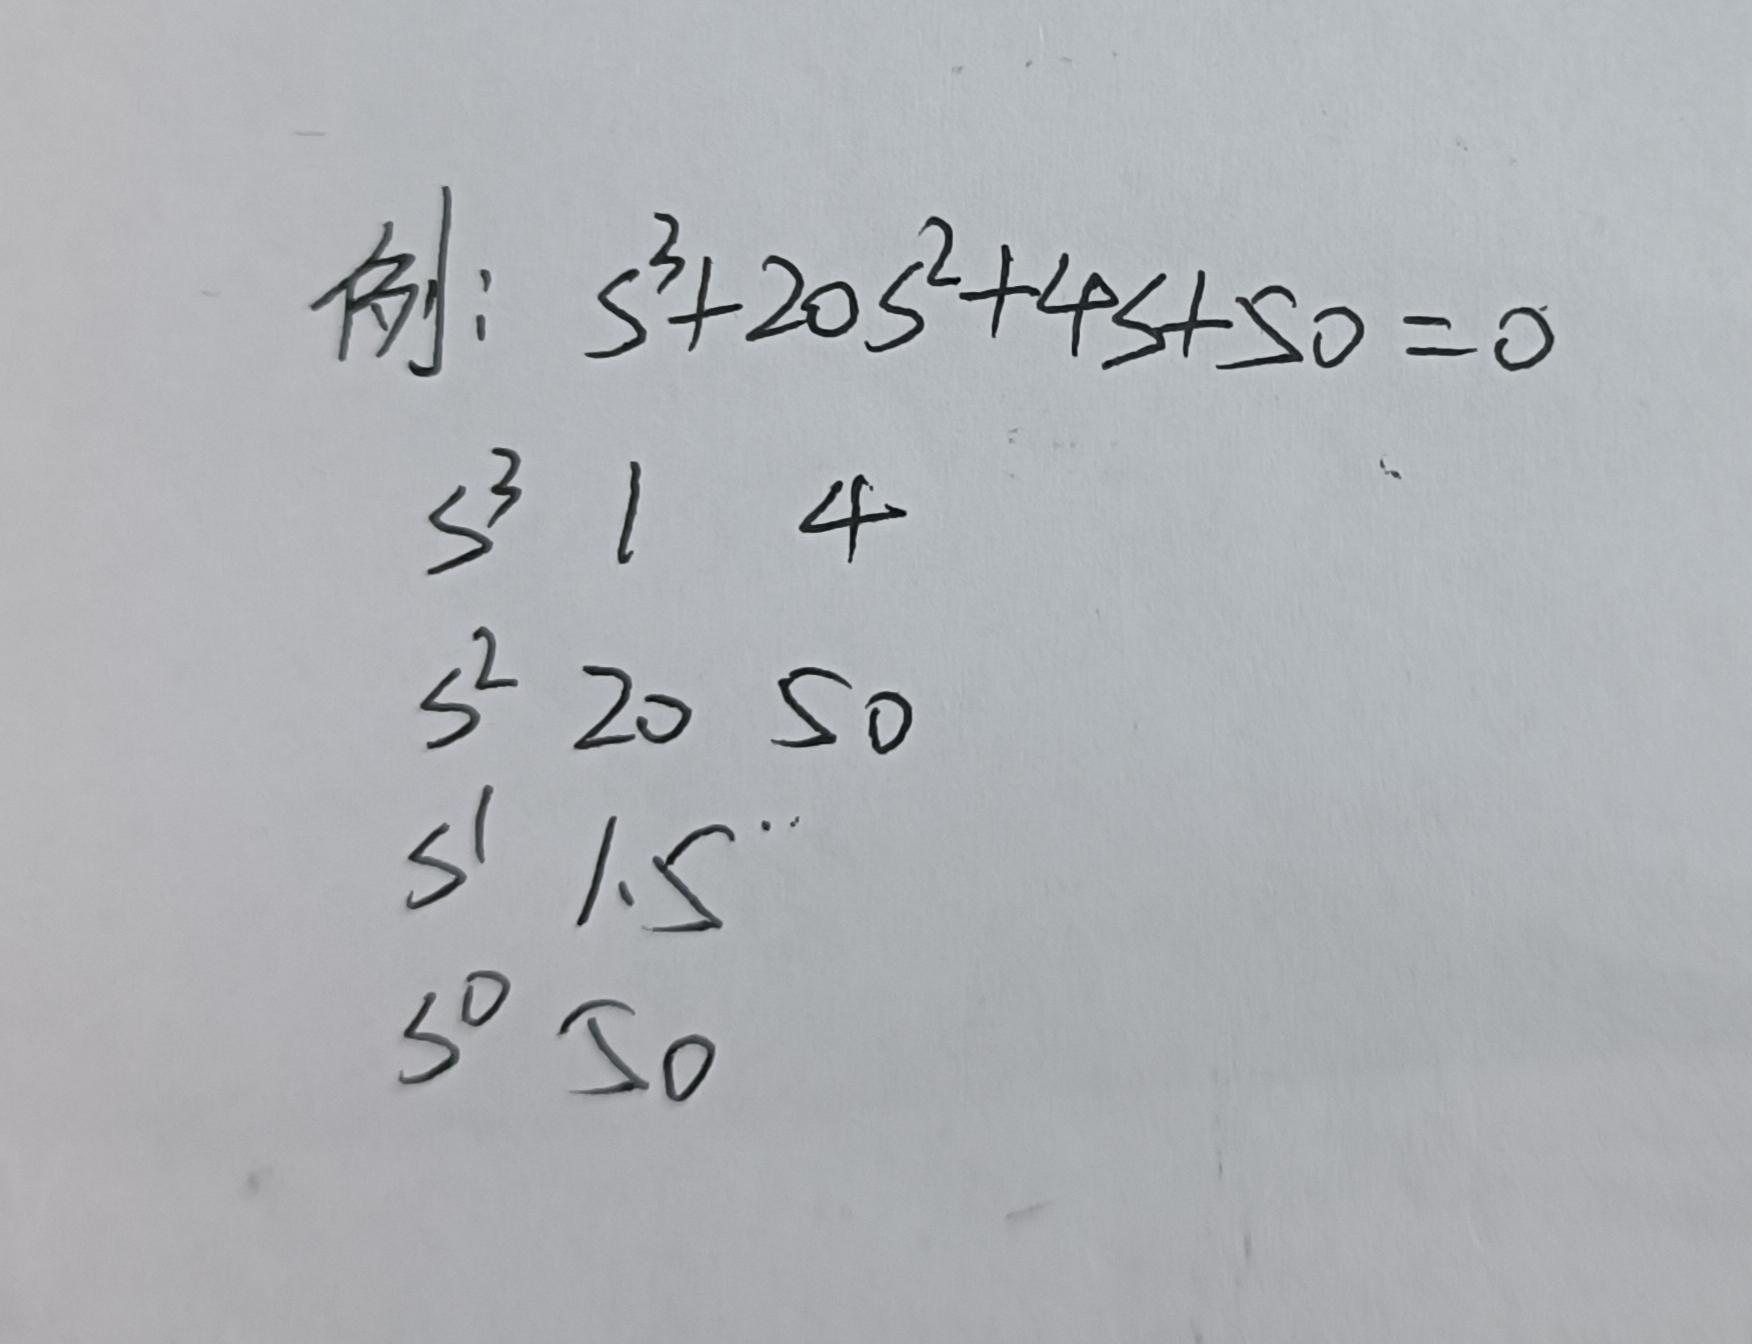 例: s³+20s²+4s+50=0
s³ 1 4
s² 20 50
s¹ 1.5
s⁰ 50